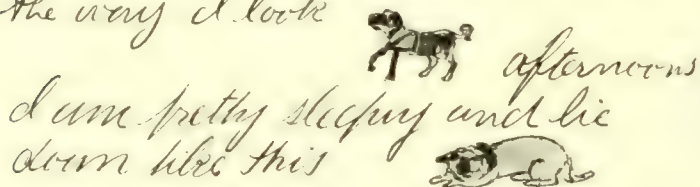 the way I look
afternoons
I am pretty sleepy and lie
down like this